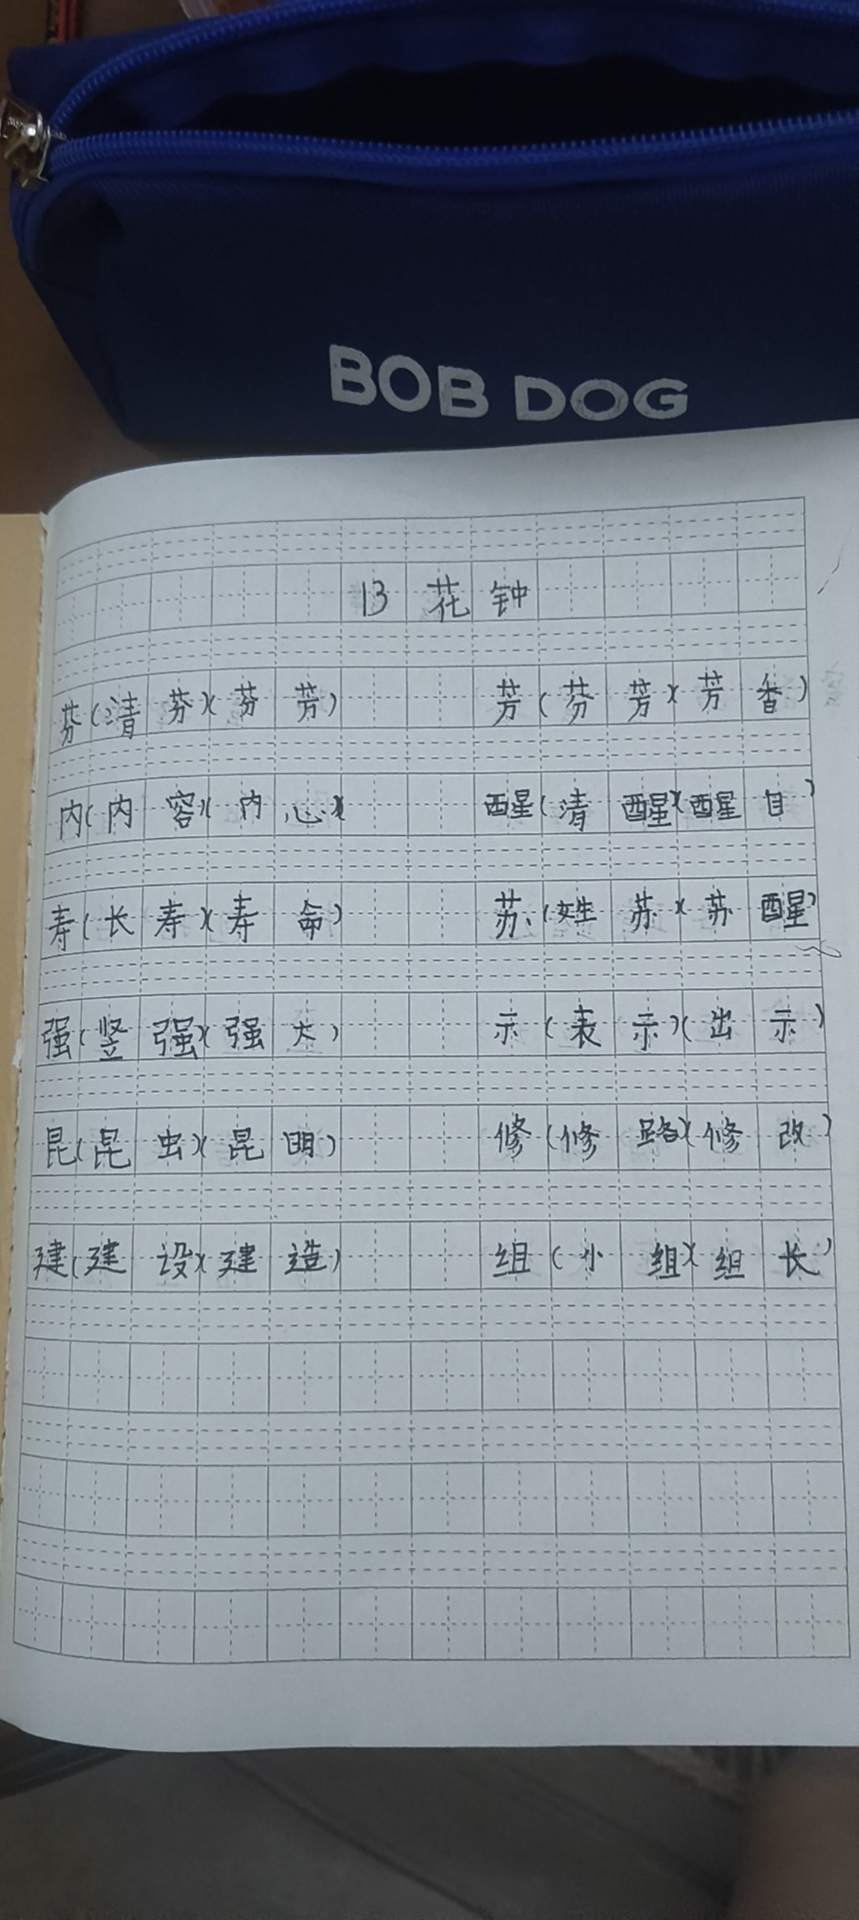 BOB DOG
13 花钟
芬(清芬)(芬芳) 芳(芬芳)(芳香)
内(内容)(内心) 醒(清醒)(醒目)
寿(长寿)(寿命) 苏(姓苏)(苏醒)
强(竖强)(强大) 示(表示)(出示)
昆(昆虫)(昆明) 修(修路)(修改)
建(建设)(建造) 组(小组)(组长)